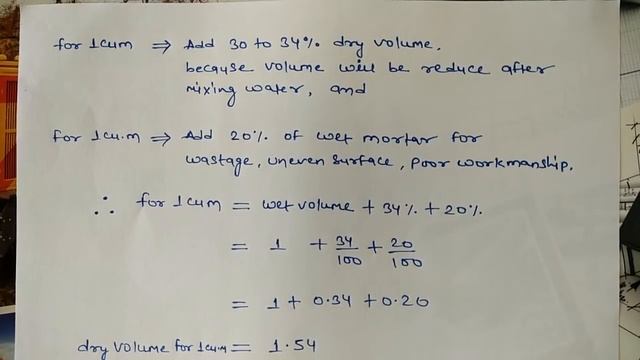 for 1cum ⇒ Add 30 to 34% dry volume.
because volume will be reduce after
mixing water, and
for 1cu.m ⇒ Add 20% of wet mortar for
wastage, uneven surface, poor workmanship.
∴ for 1cum = wet volume + 34% + 20%
= 1 + 34/100 + 20/100
= 1 + 0.34 + 0.20
dry volume for 1cu.m = 1.54